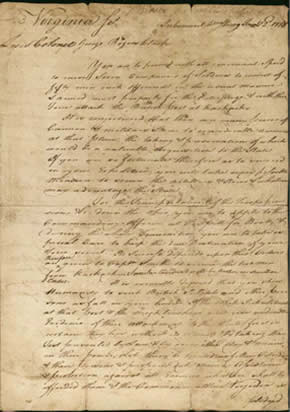 Virginia Sct. In Council Wmsburg Jany 2d 1778
Lieut Colonel George Rogers Clark
You are to proceed with all convenient Speed
to raise Seven Companies of Soldiers to consist of
fifty men each officered in the usual manner &
armed most properly for the Enterprize, & with this
Force attack the British post at Kaskasky.
It is conjectured that there are many pieces of
Cannon & military Stores to considerable amount
at that place, the taking & preservation of which
would be a valuable acquisition to the State.
If you are so fortunate therefore as to succeed
in your Expectation, you will take every possible
Measure to secure the artillery & stores & whatever
may advantage the State.
For the Transportation of the Troops, provi
sions &c down the Ohio, you are to apply to the
Commanding Officer at Fort Pitt for Boats, &c
during the whole Transaction you are to take es
pecial Care to keep the true Destination of your
Force secret. Its success depends upon this.
given to Captn Smith to secure the two men
from Kaskasky. Similar conduct will be proper in similar
cases.
It is earnestly desired that you show
Humanity to such British Subjects and other
persons as fall in your hands. If the white Inhabitants
at that post & the neighbourhood will give undoubted
Evidence of their attachment to this State (for it is
certain they live within its Limits) by taking the
Test prescribed by Law & by every other way & means
in their power, Let them be treated as fellow Citizens
& their persons & property duly secured. Assistance
& protection against all Enemies whatever shall be
afforded them & the Commonwealth of Virginia is
pledged